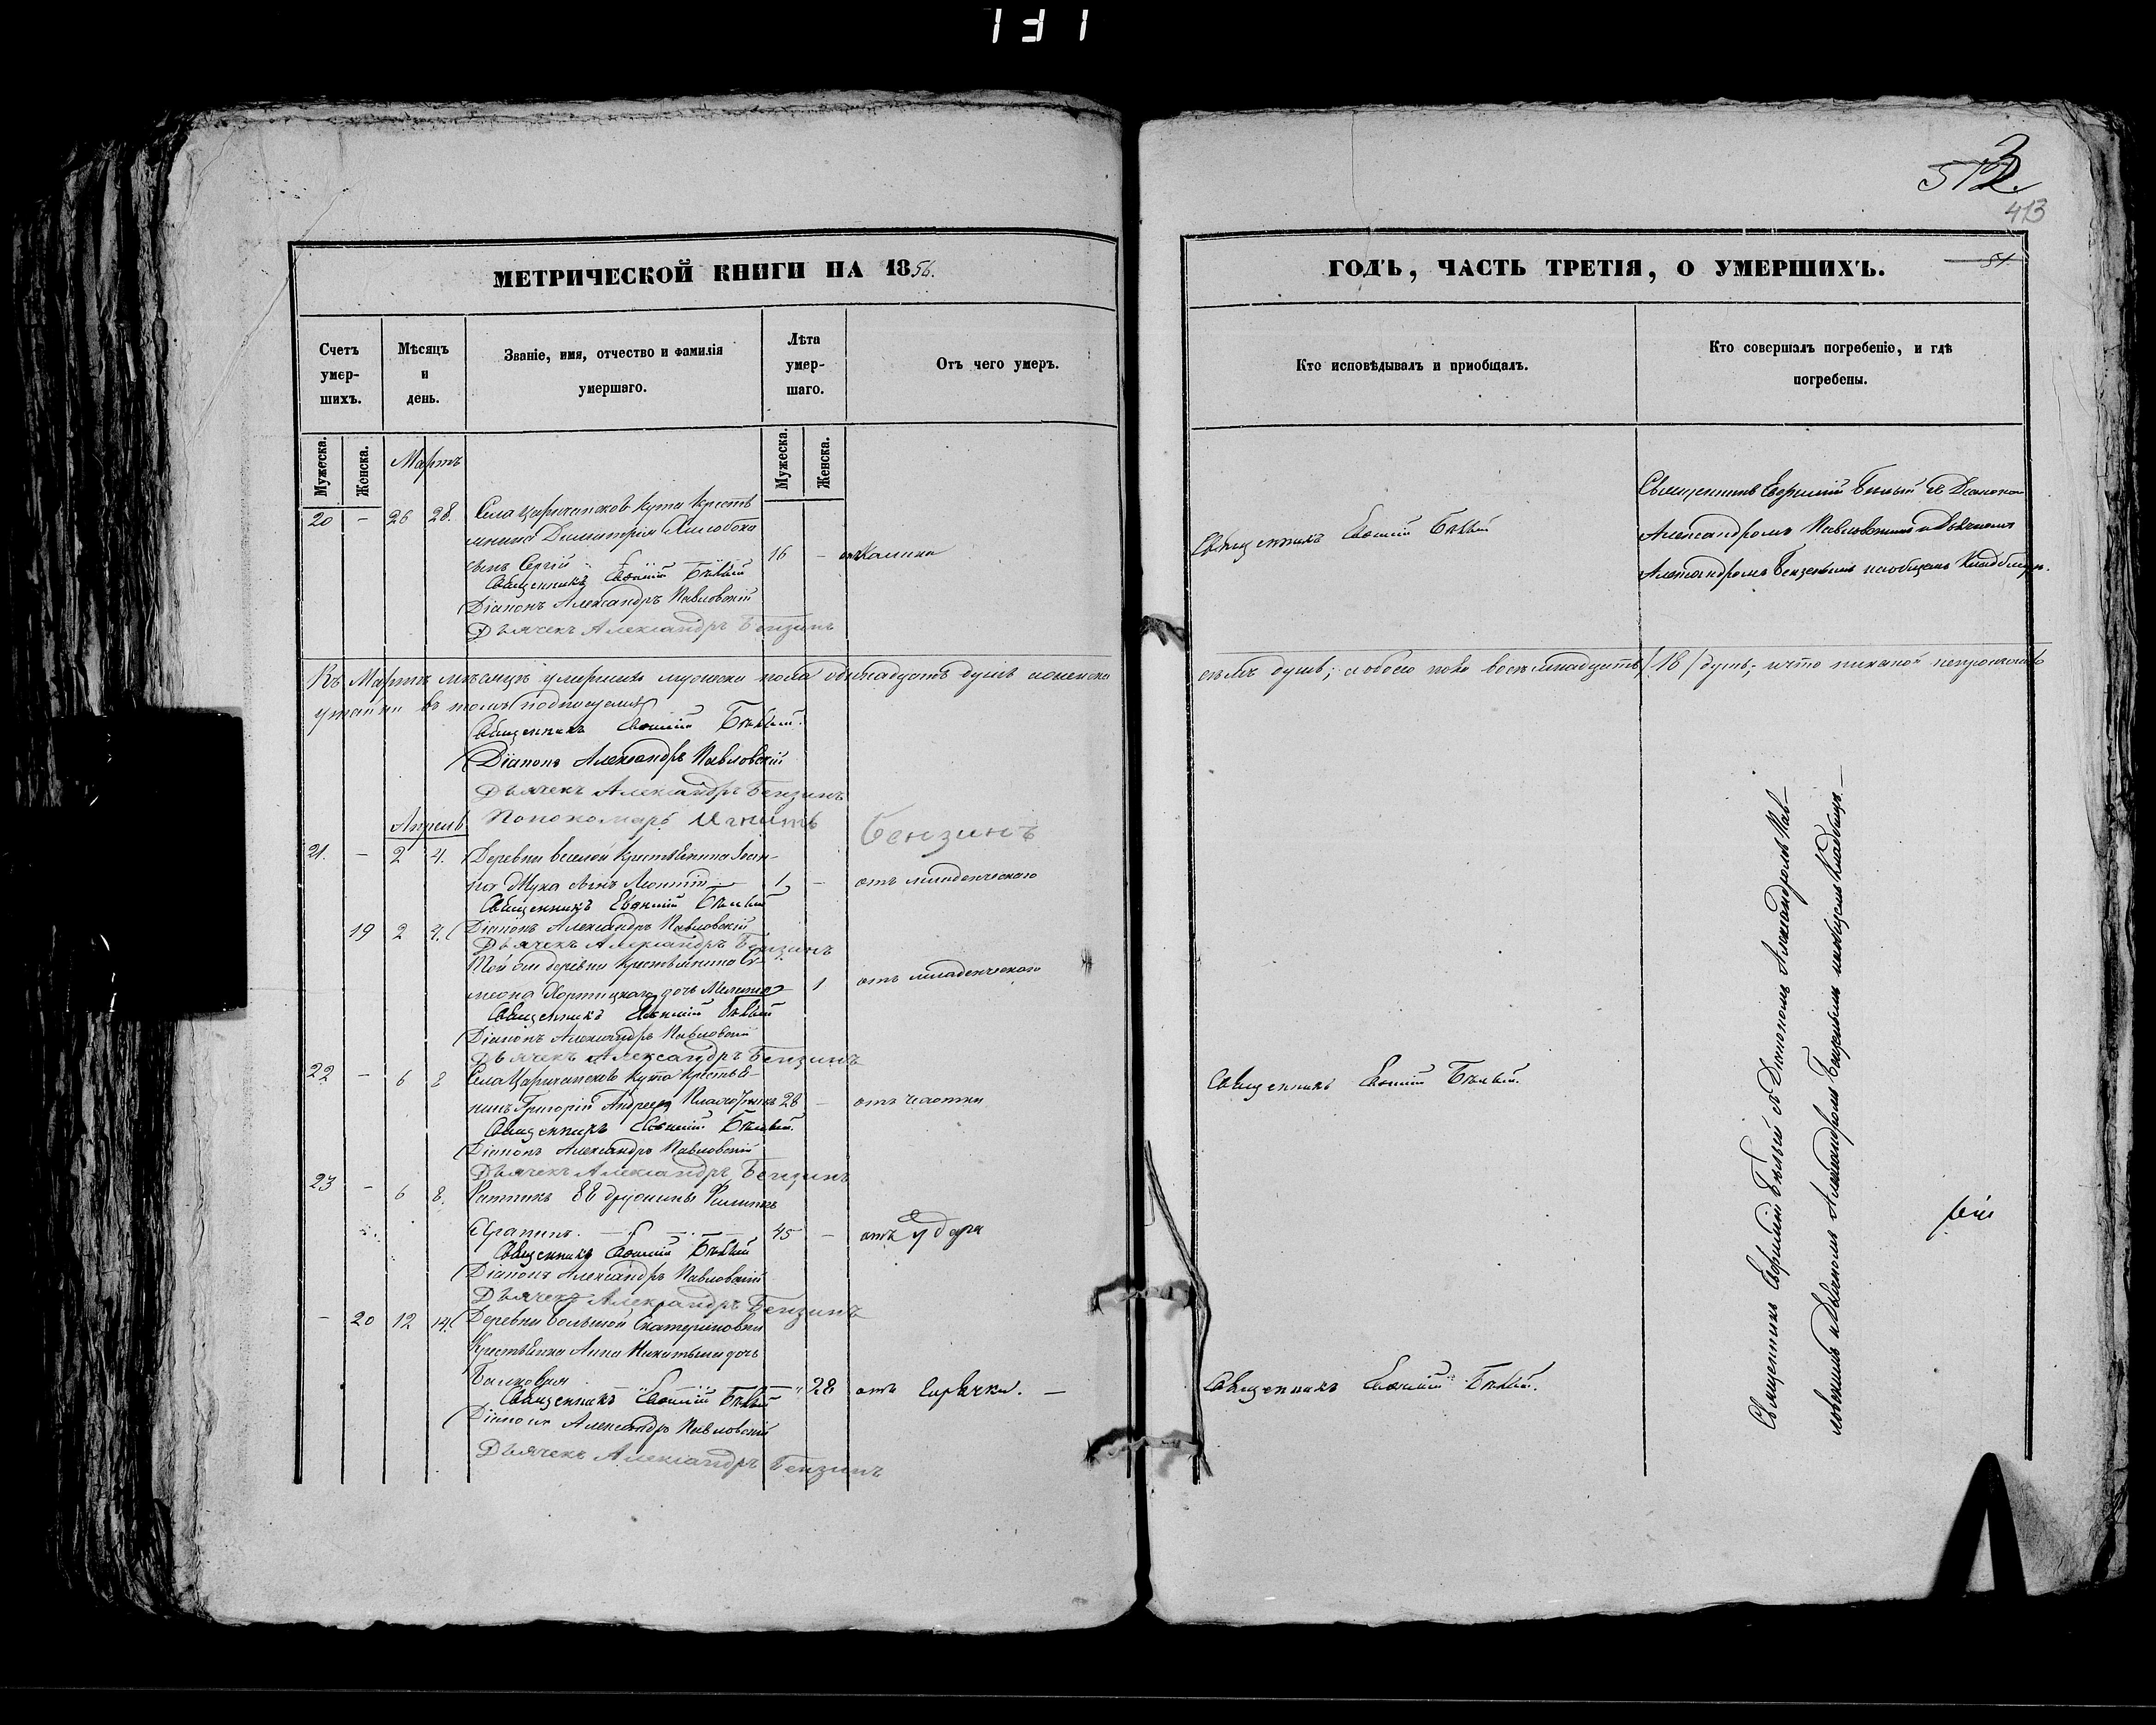 131
МЕТРИЧЕСКОЙ КНИГИ НА 1856.
Счетъ умер-шихъ.
Мѣсяцъ и день.
Званіе, имя, отчество и фамилія умершаго.
Лѣта умер-шаго.
Отъ чего умеръ.
Мужеска.
Женска.
Мужеска.
Женска.
Мартъ
20 - 26 28. Села Царичанскокъ Кута Кресть
янина Димитрія
сынъ Сергій 16 -
Священникъ Евѳимій Бѣлый
Діаконъ Александръ Павловскій
Дьячекъ Александръ Бензинъ
Въ Мартѣ мѣсяцѣ умершихъ мужеска пола одинадцать душъ женска
утайки въ томъ подписуемся
Священникъ Евѳимій Бѣлый.
Діаконъ Александръ Павловскій
Дьячекъ Александръ Бензинъ
Пономарь Бензинъ
Апрель
21. - 2 4. Деревни Веселой Крестьянина Іоан-
на Жука сынъ Леонтій 1 - отъ младенческаго
Священникъ Евѳимій Бѣлый
19 2 4. Діаконъ Александръ Павловскій
Дьячекъ Александръ Бензинъ
Той же деревни Крестьянина Си-
меона дочь 1 отъ младенческаго
Священникъ Евѳимій Бѣлый
Діаконъ Александръ Павловскій
Дьячекъ Александръ Бензинъ
22 - 6 8 Села Кута Крестья-
нинъ Григорій Андреевъ 28 - отъ чахотки
Священникъ Евѳимій Бѣлый.
Діаконъ Александръ Павловскій
Дьячекъ Александръ Бензинъ
23 - 6 8. Ратникъ 88 дружины Филиппъ
45 - отъ удара
Священникъ Евѳимій Бѣлый
Діаконъ Александръ Павловскій
Дьячекъ Александръ Бензинъ
- 20 12 14. Деревни Большой Екатериновки
Крестьянка Анна Никитина дочь
28 отъ горячки. —
Священникъ Евѳимій Бѣлый
Діаконъ Александръ Павловскій
Дьячекъ Александръ Бензинъ
413
ГОДЪ, ЧАСТЬ ТРЕТІЯ, О УМЕРШИХЪ.
51.
Кто исповѣдывалъ и пріобщалъ.
Кто совершалъ погребеніе, и гдѣ погребены.
Священникъ Евѳимій Бѣлый
Священникъ Евфимій Бѣлый съ Діакономъ
Александромъ Павловскимъ и Дьячкомъ
Александромъ Бензинымъ на общемъ Кладбищѣ.
семь душъ; обоего пола восемнадцать /18/ душъ; и что никакой непроисходило
Священникъ Евѳимій Бѣлый.
Священникъ Евѳимій Бѣлый.
Священникъ Евфимій Бѣлый съ Діакономъ Александромъ Пав—
ловскимъ и Дьячкомъ Александромъ Бензинымъ на общемъ Кладбищѣ. —